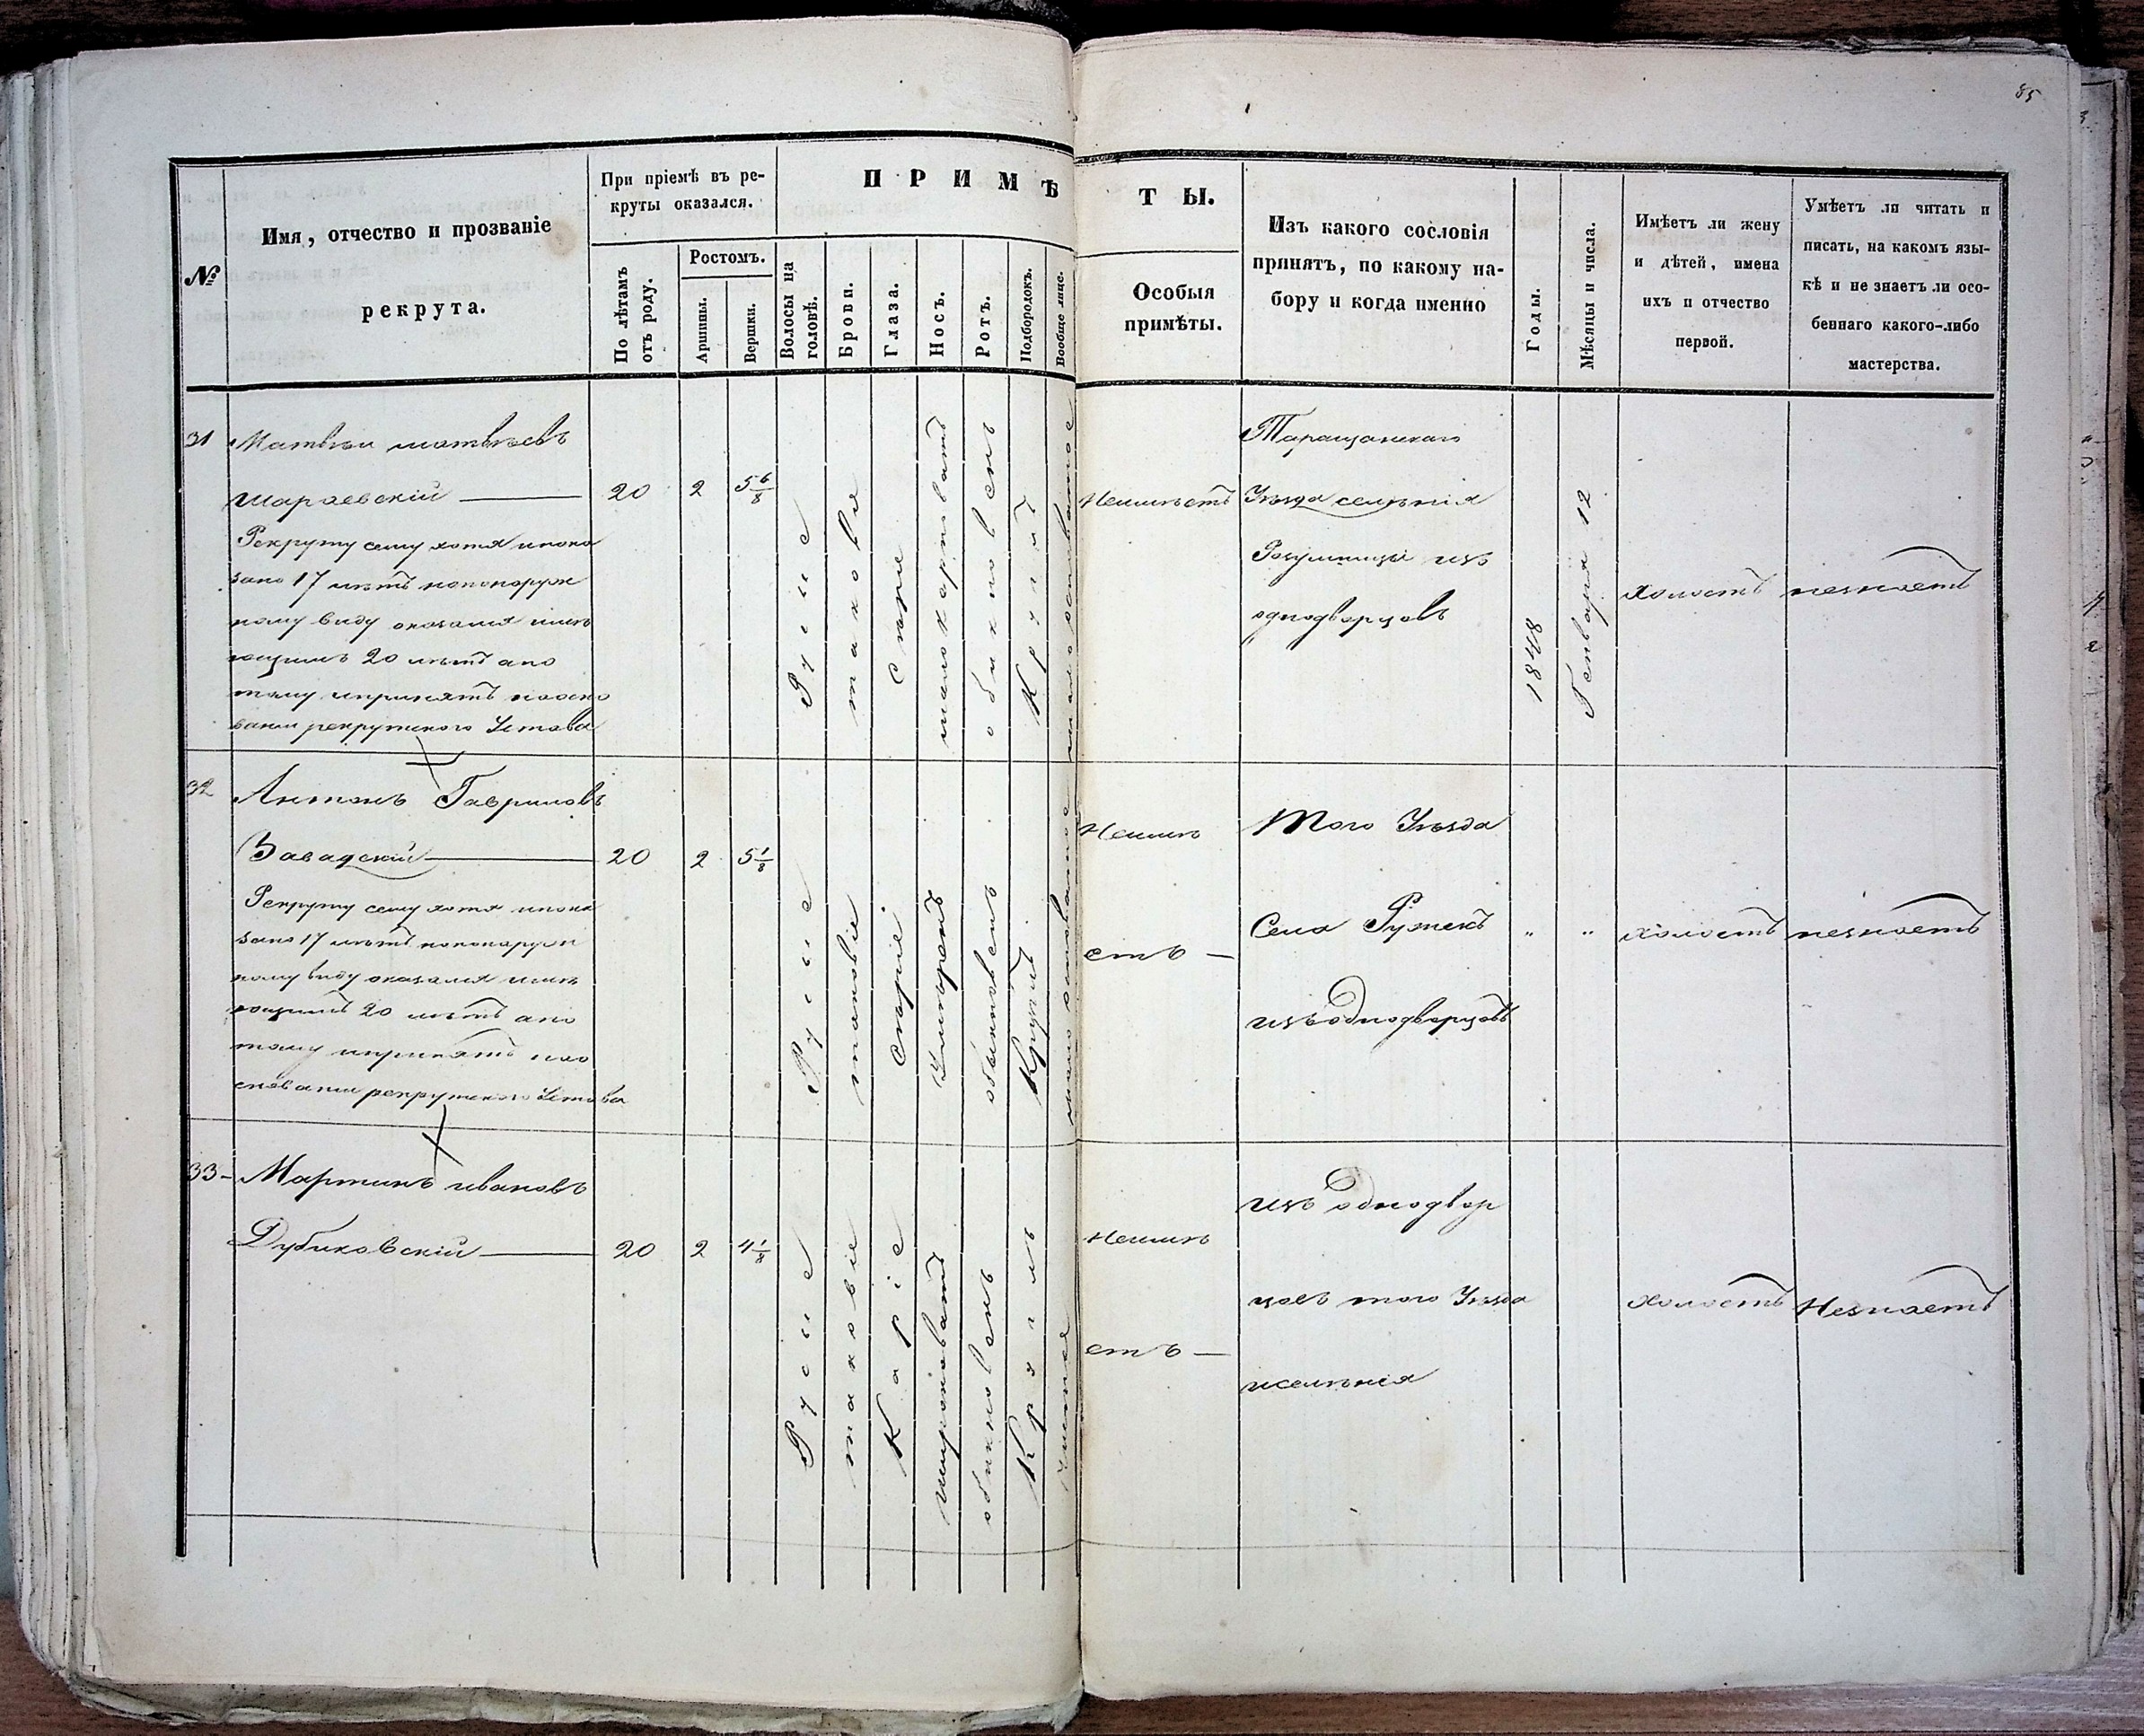 85
№
Имя, отчество и прозваніе
рекрута.
При пріемѣ въ ре-
круты оказался.
По лѣтамъ
отъ роду.
Ростомъ.
Аршины.
Вершки.
ПРИМѢ
ТЫ.
Волосы на
головѣ.
Брови.
Глаза.
Носъ.
Ротъ.
Подбородокъ.
Вообще лице.
Особыя
примѣты.
Изъ какого сословія
принятъ, по какому на-
бору и когда именно
Годы.
Мѣсяцы и числа.
Имѣетъ ли жену
и дѣтей, имена
ихъ и отчество
первой.
Умѣетъ ли читать и
писать, на какомъ язы-
кѣ и не знаетъ ли осо-
беннаго какого-либо
мастерства.
31
Матвѣи матвѣевъ
шараевскій
Рекруту сему хотя и пока
зано 17 лѣтъ но по наруж
ному виду оказался имѣ
ющимъ 20 лѣтъ а по
тому и принятъ на осно
ваніи рекрутского Устава
20
2
5 6/8
Русие
таковія
Сѣрие
обикновенъ
Круглий
Неимѣетъ
Таращанскаго
Уѣзда селѣнія
изъ
однодворцовъ
1848
Генваря 12
холостъ
незнаетъ
32
Антонъ Гавриловъ
Завадскій
Рекруту сему хотя и пока
зано 17 лѣтъ но по наруж
ному виду оказался имѣ
ющимъ 20 лѣтъ а по
тому и принятъ на о
снованіи рекрутского Устава
20
2
5 1/8
Русие
таковіе
Сѣріе
обыкновенъ
Круглъ
Неимѣ
етъ
Того Уѣзда
Села
изъ однодворцовъ
"
"
холостъ
незнаетъ
33
Мартинъ ивановъ
Дубиковскій
20
2
4 1/8
Русие
таковіе
Каріе
широковатъ
обикновенъ
Круглъ
Чистое
Неимѣ
етъ
изъ однодвор
цовъ того Уѣзда
и селѣнія
холостъ
Незнаетъ